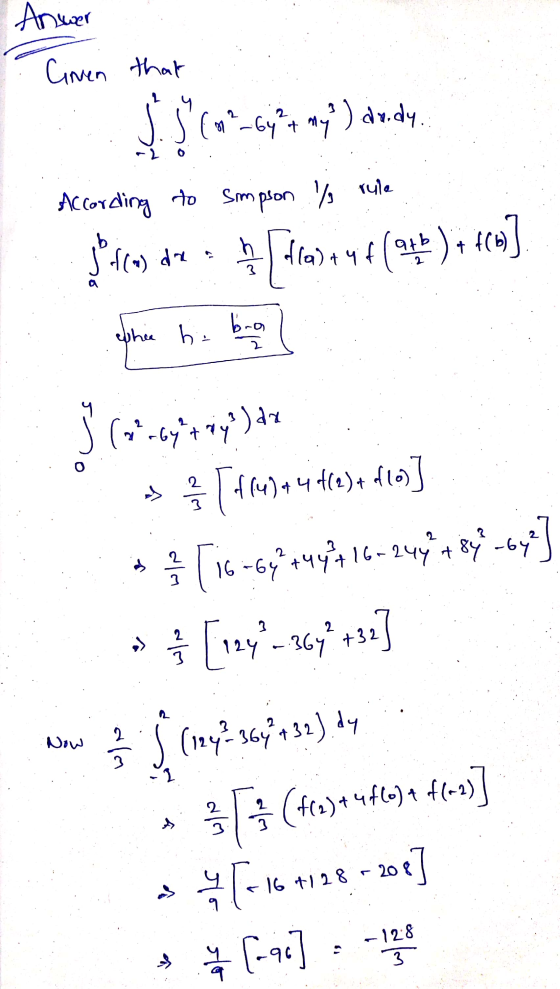 Answer
Given that
∫_{-2}^{2} ∫_{0}^{4} (x² - 6y² + xy³) dx.dy.
According to Simpson 1/3 rule
∫_{a}^{b} f(x) dx = h/3 [f(a) + 4f((a+b)/2) + f(b)]
where h = (b-a)/2
∫_{0}^{4} (x² - 6y² + xy³) dx
⇒ 2/3 [f(4) + 4f(2) + f(0)]
⇒ 2/3 [16 - 6y² + 4y³ + 16 - 24y² + 8y³ - 6y²]
⇒ 2/3 [12y³ - 36y² + 32]
Now 2/3 ∫_{-2}^{2} (12y³ - 36y² + 32) dy
⇒ 2/3 [2/3 (f(2) + 4f(0) + f(-2)]
⇒ 4/9 [-16 + 128 - 208]
⇒ 4/9 [-96] = -128/3